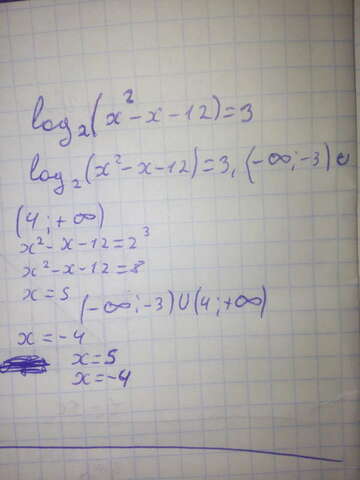 log₂(x² - x - 12) = 3
log₂(x² - x - 12) = 3, (-∞; -3) ∪
(4; +∞)
x² - x - 12 = 2³
x² - x - 12 = 8
x = 5
(-∞; -3) ∪ (4; +∞)
x = -4
x = 5
x = -4